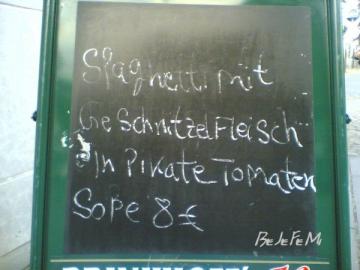 Spaghetti mit
GeSchnitzelFleisch
in Pikate Tomaten
Soße 8 €
BeJeFeMi